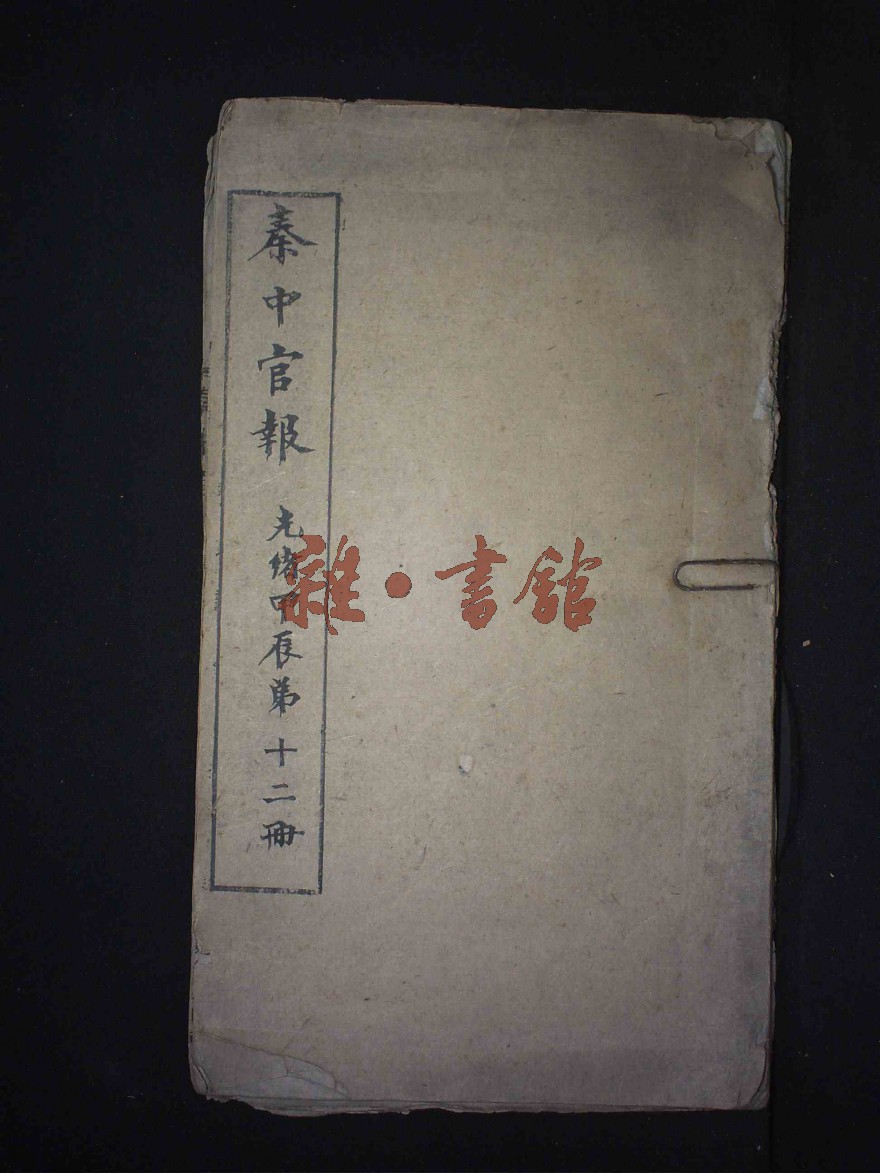 秦中官報 光緒甲辰弟十二冊
雜·書館